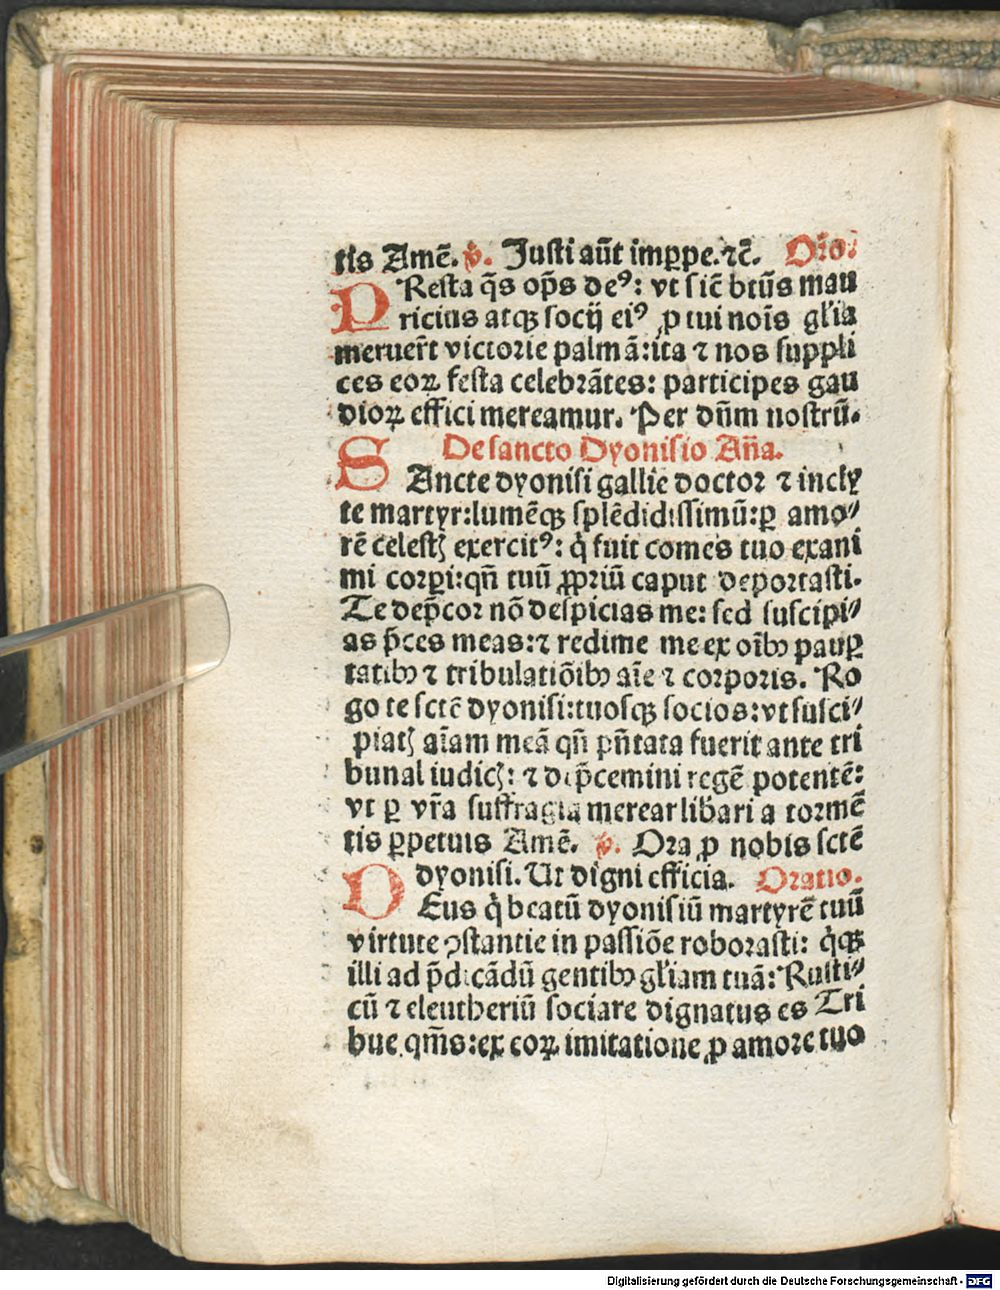 tis Amē. ꝟ. Justi aūt imꝑpe. ⁊c̄. Orō.
PResta q̄s op̄s deꝰ: vt sic̄ btūs mau
ricius atqꝫ socij eiꝰ ꝓ tui nois̄ gl'ia
meruer̄t victorie palmā: ita ⁊ nos suppli
ces eoꝝ festa celebrātes: participes gau
dioꝝ effici mereamur. Per dn̄m nostrū.
De sancto Dyonisio Añā.
SAncte dyonisi gallie doctor ⁊ incly
te martyr: lumēqꝫ splēdidissimū: ꝑ amo⸗
rē celestꝭ exercitꝰ: q̇ fuit comes tuo exani
mi corꝑi: qn̄ tuū ꝓpriū caput deportasti.
Te dep̄cor nō despicias me: sed suscipi⸗
as p̄ces meas: ⁊ redime me ex oībꝫ pauꝑ
tatibꝫ ⁊ tribulatiōibꝫ aīe ⁊ corporis. Ro
go te sctē dyonisi: tuosqꝫ socios: vt susci⸗
piatꝭ aīam meā qn̄ pn̄tata fuerit ante tri
bunal iudicꝭ: ⁊ dep̄cemini regē potentē:
vt ꝑ vr̄a suffragia merear lib̄ari a tormē
tis ꝑpetuis Amē. ꝟ. Ora ꝓ nobis sctē
dyonisi. Ut digni efficia. Oratio.
DEus q̇ beatū dyonisiū martyrē tuū
virtute ꝯstantie in passiōe roborasti: q̇qꝫ
illi ad p̄dicādū gentibꝫ gl'iam tuā: Rusti⸗
cū ⁊ eleutheriū sociare dignatus es Tri
bue qm̄s: ex eoꝝ imitatione ꝓ amore tuo
Digitalisierung gefördert durch die Deutsche Forschungsgemeinschaft - DFG